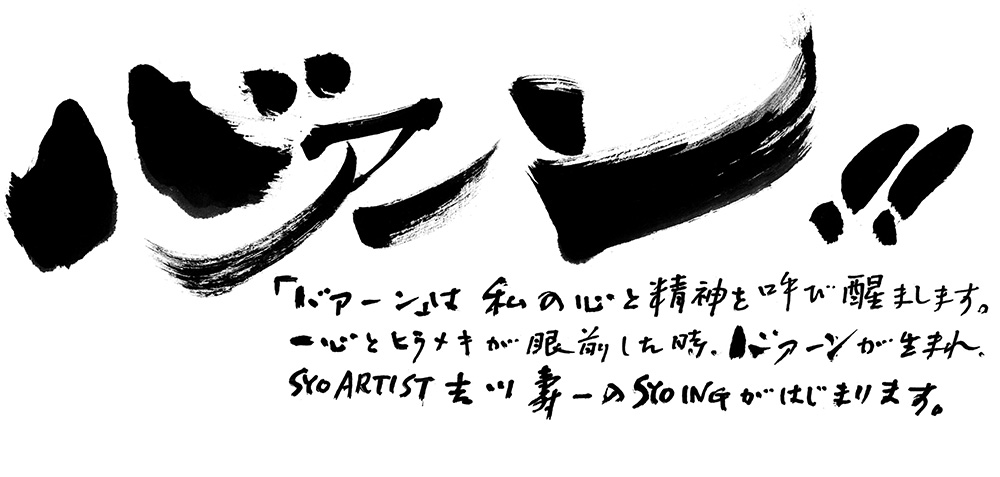 バァーン!!
「バァーン」は 私の心と精神を呼び醒まします。
一心とヒラメキが眼前した時、バァーンが生まれ、
SYO ARTIST 吉川壽一のSYOINGがはじまります。